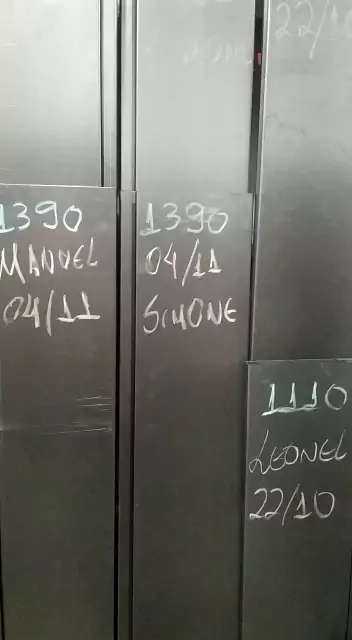 22/10
1390
MANUEL
04/11
1390
04/11
SIMONE
1110
LEONEL
22/10